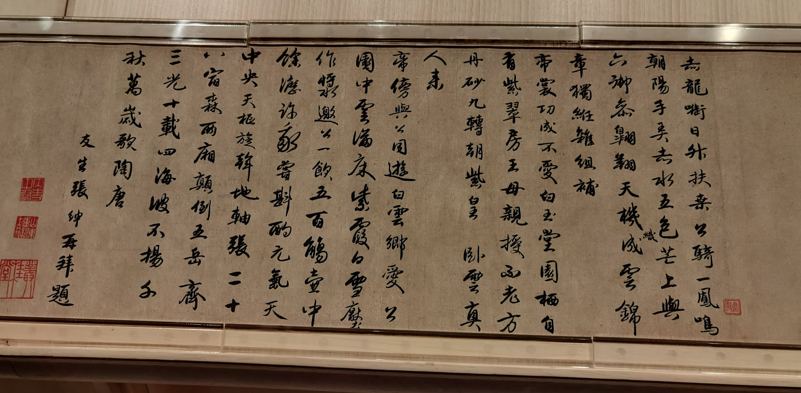 赤龍銜日升扶桑公騎一鳳鳴
朝陽手弄赤水五色芒上與
六御參翱翔天機織成雲錦
章獨紝雜組補
帝裳功成不愛白玉堂園栖自
有紫翠房王母親授不老方
丹砂九轉朝紫皇臥雲真
人未
帝傍與公同遊白雲鄉愛公
園中雲滿床紫霞白雪
作漿邀公一飲五百觴壺中
餘瀝許我嘗斟酌元氣天
中央天樞旋斡地軸張二十
八宿森兩廂顛倒五岳齊
三光十載四海波不揚千
秋萬歲歌陶唐
友生張紳再拜題